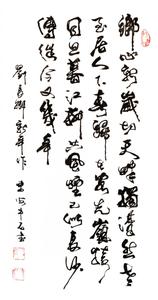 鄉心新歲切天畔獨潸然老
至居人下春歸在客先嶺猿
同旦暮江柳共風煙已似長沙
傅從今又幾年
劉長卿新年作
書